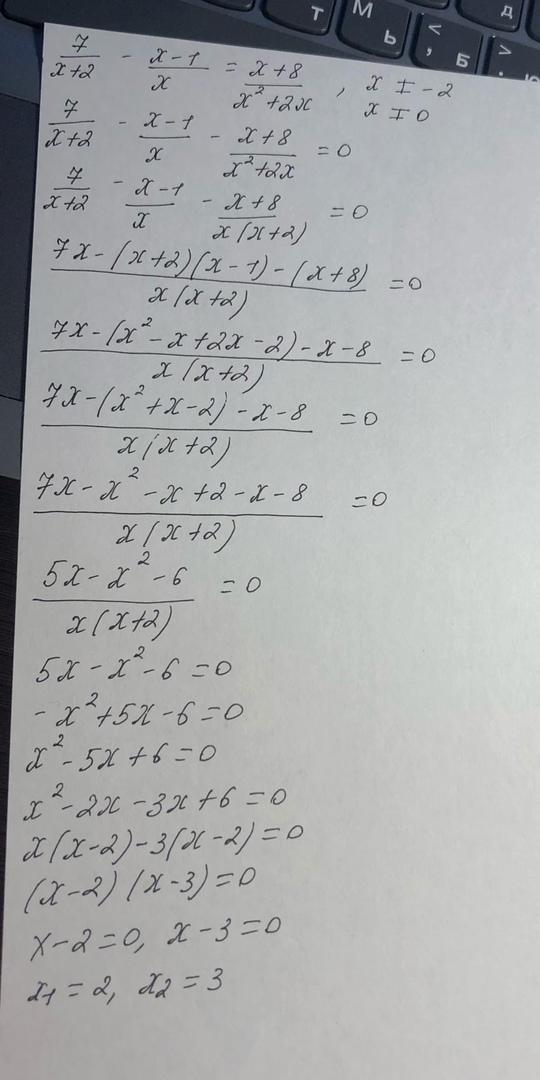 т М Ь < , Б > . д
7/(x+2) - (x-1)/x = (x+8)/(x²+2x) , x ≠ -2
x ≠ 0
7/(x+2) - (x-1)/x - (x+8)/(x²+2x) = 0
7/(x+2) - (x-1)/x - (x+8)/(x(x+2)) = 0
(7x-(x+2)(x-1)-(x+8))/(x(x+2)) = 0
(7x-(x²-x+2x-2)-x-8)/(x(x+2)) = 0
(7x-(x²+x-2)-x-8)/(x(x+2)) = 0
(7x-x²-x+2-x-8)/(x(x+2)) = 0
(5x-x²-6)/(x(x+2)) = 0
5x-x²-6=0
-x²+5x-6=0
x²-5x+6=0
x²-2x-3x+6=0
x(x-2)-3(x-2)=0
(x-2)(x-3)=0
x-2=0, x-3=0
x₁=2, x₂=3